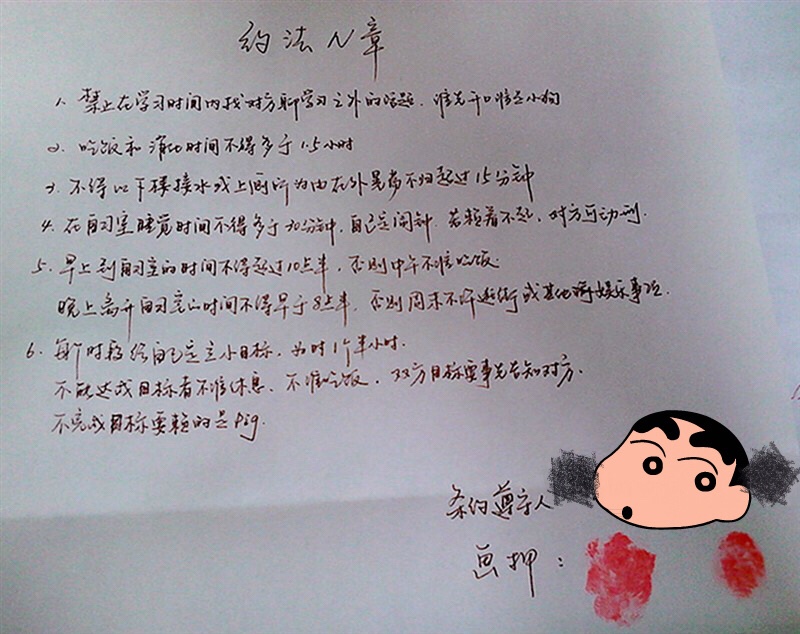 约法N章
1、禁止在学习时间内找对方聊学习之外的话题，谁先开口谁是小狗
2、吃饭和消化时间不得多于1.5小时
3、不得以下楼接水或上厕所为由在外晃荡不归超过15分钟
4、在自习室睡觉时间不得多于30分钟，自己定闹钟，若赖着不起，对方可动刑.
5、早上到自习室的时间不得超过10点半，否则中午不准吃饭.
晚上离开自习室的时间不得早于8点半，否则周末不许逛街或其他娱乐事项.
6、每个时段给自己定立小目标，为时1个半小时.
不能达成目标者不准休息，不准吃饭，双方目标要事先告知对方.
不完成目标耍赖的是pig.
条约遵守人
画押：